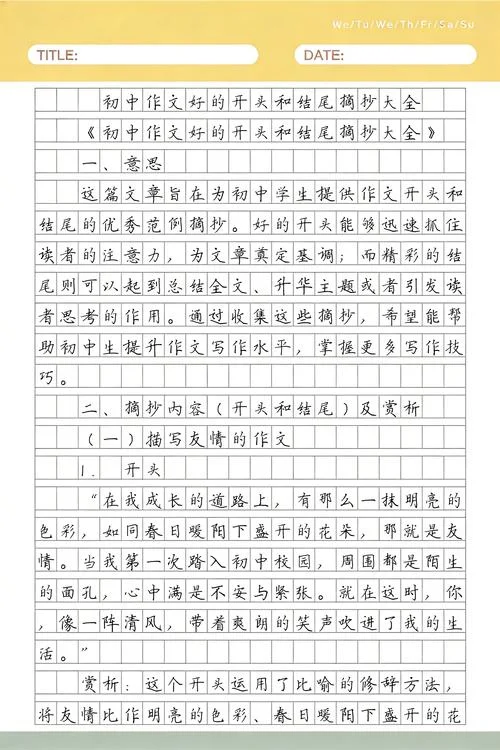 We/Tu/We/Th/Fr/Sa/Su
TITLE:
DATE:
初中作文好的开头和结尾摘抄大全
《初中作文好的开头和结尾摘抄大全》
一、意思
这篇文章旨在为初中学生提供作文开头和
结尾的优秀范例摘抄。好的开头能够迅速抓住
读者的注意力，为文章奠定基调；而精彩的结
尾则可以起到总结全文、升华主题或者引发读
者思考的作用。通过收集这些摘抄，希望能帮
助初中生提升作文写作水平，掌握更多写作技
巧。
二、摘抄内容（开头和结尾）及赏析
（一）描写友情的作文
1. 开头
“在我成长的道路上，有那么一抹明亮的
色彩，如同春日暖阳下盛开的花朵，那就是友
情。当我第一次踏入初中校园，周围都是陌生
的面孔，心中满是不安与紧张。就在这时，你
，像一阵清风，带着爽朗的笑声吹进了我的生
活。”
赏析：这个开头运用了比喻的修辞方法，
将友情比作明亮的色彩、春日暖阳下盛开的花